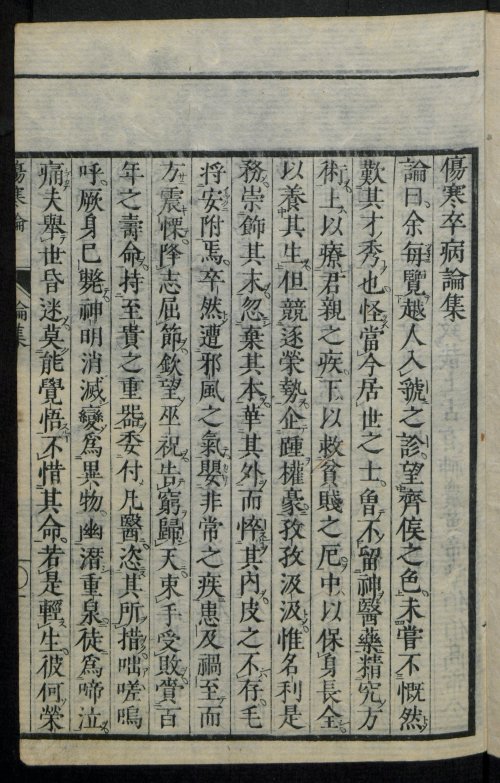 傷寒卒病論集
論曰余每覽越人入虢之診望齊侯之色未嘗不慨然
歎其才秀也怪當今居世之士曾不留神醫藥精究方
術上以療君親之疾下以救貧賤之厄中以保身長全
以養其生但競逐榮勢企踵權豪孜孜汲汲惟名利是
務崇飾其末忽棄其本華其外而悴其内皮之不存毛
將安附焉卒然遭邪風之氣嬰非常之疾患及禍至而
方震慄降志屈節欽望巫祝告窮歸天束手受敗賫百
年之壽命持至貴之重器委付凡醫恣其所措咄嗟嗚
呼厥身已斃神明消滅變爲異物幽潛重泉徒爲啼泣
痛夫舉世昏迷莫能覺悟不惜其命若是輕生彼何榮
傷寒論 論集